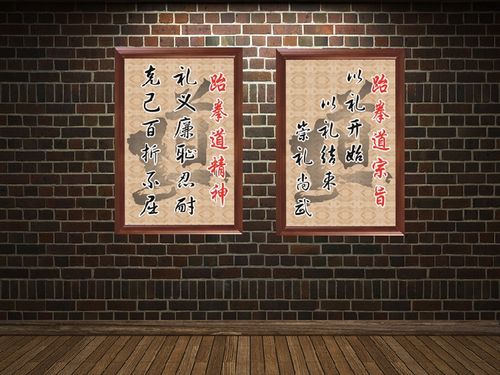 跆拳道精神
礼义廉恥忍耐
克己百折不屈
跆拳道宗旨
以礼开始
以礼结束
崇礼尚武